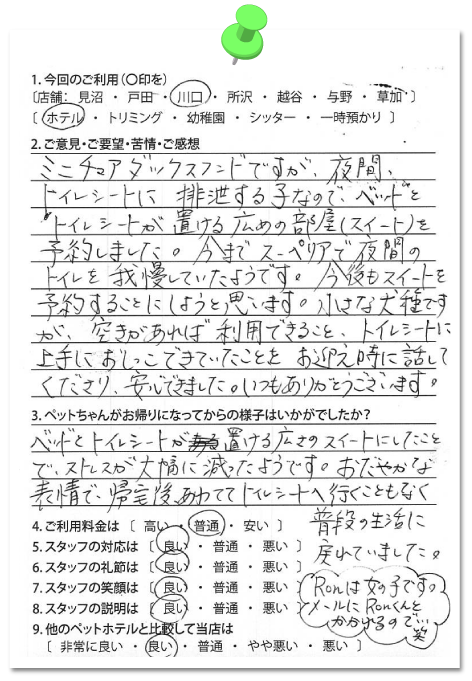 1. 今回のご利用(〇印を)
〔店舗: 見沼 ・ 戸田 ・ 川口 ・ 所沢 ・ 越谷 ・ 与野 ・ 草加 〕
〔 ホテル ・ トリミング ・ 幼稚園 ・ シッター ・ 一時預かり 〕
2.ご意見・ご要望・苦情・ご感想
ミニチュアダックスフンドですが、夜間、
トイレシートに 排泄する子なので、ベッドと
トイレシートが 置ける広めの部屋(スイート)を
予約しました。今までスーペリアで夜間の
トイレを 我慢していたようです。今後もスイートを
予約することにしようと思います。小さな犬種です
が、空きがあれば 利用できること、トイレシートに
上手におしっこできていたことを お迎え時に話して
くださり、安心できました。いつもありがとうございます。
3.ペットちゃんがお帰りになってからの様子はいかがでしたか?
ベッドとトイレシートが置ける広さのスイートにしたこと
で、ストレスが大幅に減ったようです。おだやかな
表情で、帰宅後、あわててトイレシートへ行くこともなく
普段の生活に
戻れていました。
4.ご利用料金は 〔 高い ・ 普通 ・ 安い 〕
5.スタッフの対応は 〔 良い ・ 普通 ・ 悪い 〕
6.スタッフの礼節は 〔 良い ・ 普通 ・ 悪い 〕
7.スタッフの笑顔は 〔 良い ・ 普通 ・ 悪い 〕
8.スタッフの説明は 〔 良い ・ 普通 ・ 悪い 〕
9.他のペットホテルと比較して当店は
〔 非常に良い ・ 良い ・ 普通 ・ やや悪い ・ 悪い 〕
Ronは女の子です。
メールにRonくんと
かかれるので…
笑